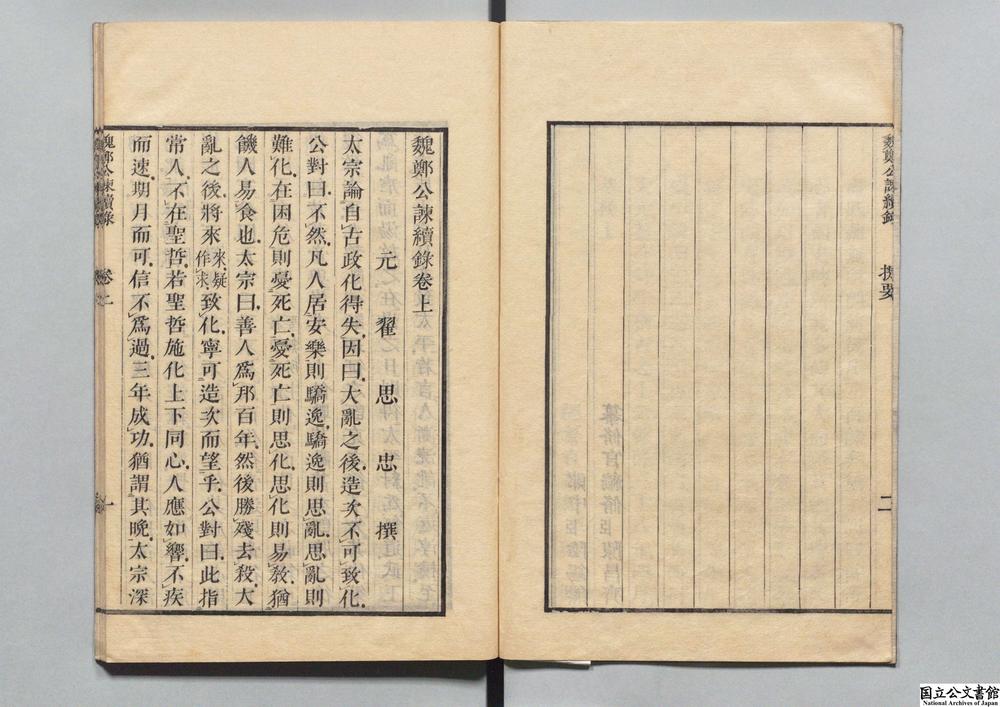 魏鄭公諫續錄
提要
二
魏鄭公諫續錄卷上
元 翟思忠 撰
太宗論自古政化得失因曰大亂之後造次不可致化
公對曰不然凡人居安樂則驕逸驕逸則思亂思亂則
難化在困危則憂死亡憂死亡則思化思化則易教猶
饑人易食也太宗曰善人爲邦百年然後勝殘去殺大
亂之後將來來疑作求致化寧可造次而望乎公對曰此指
常人不在聖哲若聖哲施化上下同心人應如響不疾
而速期月而可信不爲過三年成功猶謂其晚太宗深
魏鄭公諫續錄
卷上
一
国立公文書館
National Archives of Japan